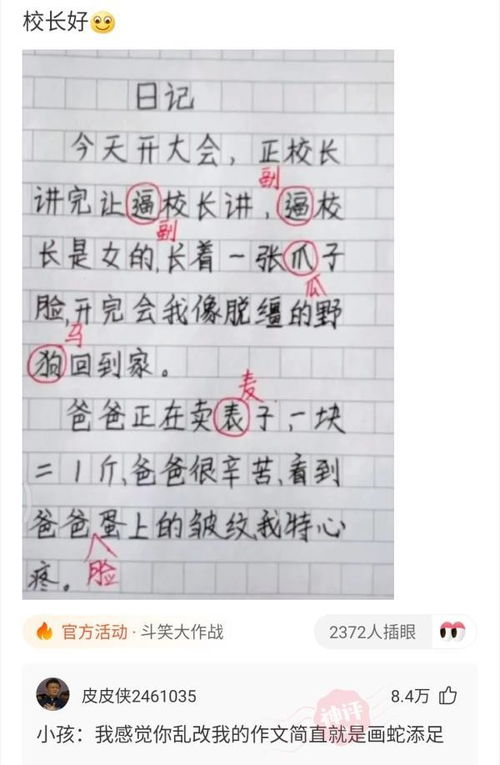 校长好
日记
今天开大会，正校长
副
讲完让逼校长讲，逼校
副
长是女的，长着一张爪子
瓜
脸，开完会我像脱缰的野
马
狗回到家。
麦
爸爸正在卖表子，一块
二1斤，爸爸很辛苦，看到
爸爸蛋上的皱纹我特心
脸
疼。
官方活动·斗笑大作战
2372人插眼
皮皮侠2461035
8.4万
神评
小孩：我感觉你乱改我的作文简直就是画蛇添足